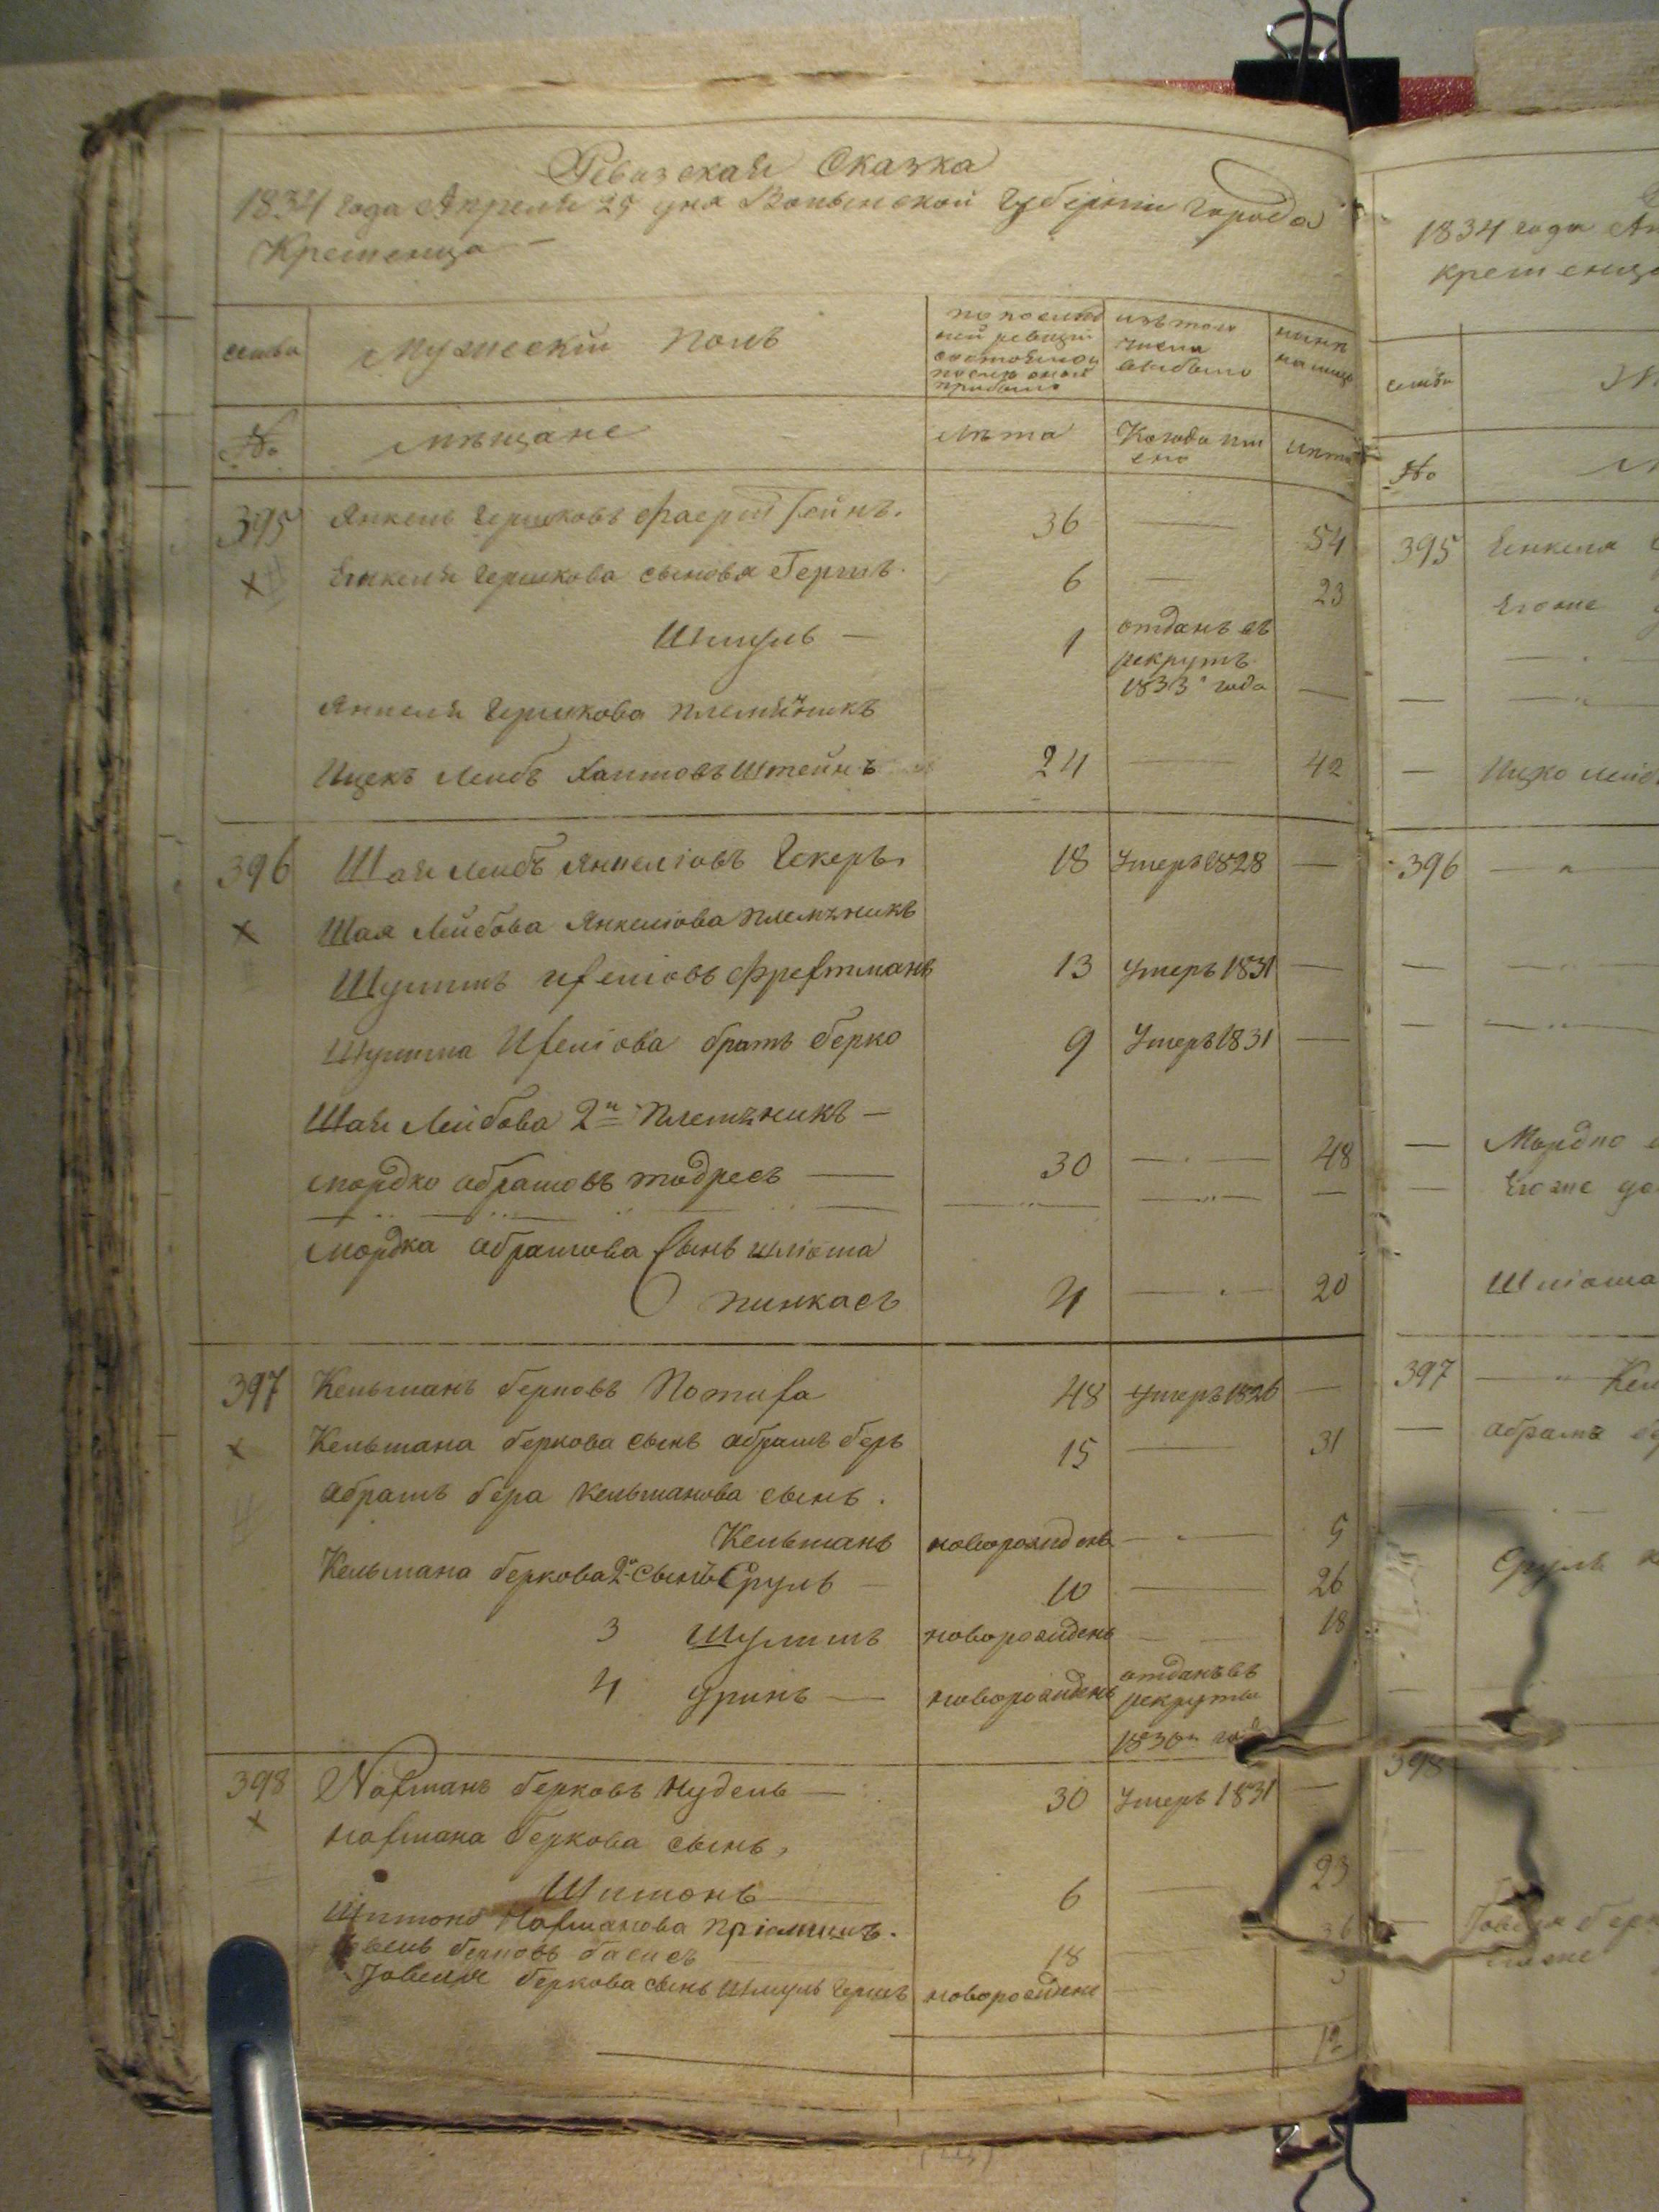 Ревизская Сказка
1834 года Апреля 25 дня Волынской Губернiи города
Кременца
семьи
Мужескiй полъ
по послед
ней ревизiи
состояло и
после оной
прибыло
изъ того
числа
выбыло
ныне
на лицо
№
мѣщане
лѣта
Когда им
ено
лѣта
395 Янкель Гершковъ Фаерштейнъ. 36 — 54
Янкеля Гершкова сыновя Гершъ. 6 — 23
Шмуль — 1 отданъ въ
рекрутъ
1833 года —
Янкеля Гершкова племянникъ
Ицекъ Леибъ Хаимовъ Штейнъ 24 — 42
396 Шая Леибъ Янкелiовъ Гекеръ 18 Умеръ 1828 —
Шая Лейбова Янкелiова племѣникъ
Шулимъ Иселiовъ 13 умеръ 1831 —
Шулима Иселiова братъ берко 9 Умеръ 1831 —
Шая Леибова 2й племѣникъ —
мордко абрамовъ тодресъ — 30 — 48
мордка абрамова сынъ шлiома
пинкасъ 4 — 20
397 Кельманъ берковъ 48 умеръ 1826 —
Кельмана беркова сынъ абрамъ беръ 15 — 31
абрамъ бера Кельманова сынъ.
Кельманъ новорожденъ — 5
Кельмана беркова 2й сынъ Сруль — 10 — 26
3 Шулимъ новорожденъ — 18
4 Уринъ — новорожденъ отданъ въ
рекруты
1830
398 Нафманъ берковъ Нудель — 30 Умеръ 1831 —
нафмана беркова сынъ,
Шимонъ 6 — 23
Шимона Нафманова
берковъ 18 — 36
Iовеля беркова сынъ Шмуль Гершъ новорожденъ — 3
12
1834 года
кременца
семьи
№
395 Янкеля
Егоже
— Ицко Леиб
396
— Мордко
— Егоже
Шлiома
397
— абрамъ
Сруль
398